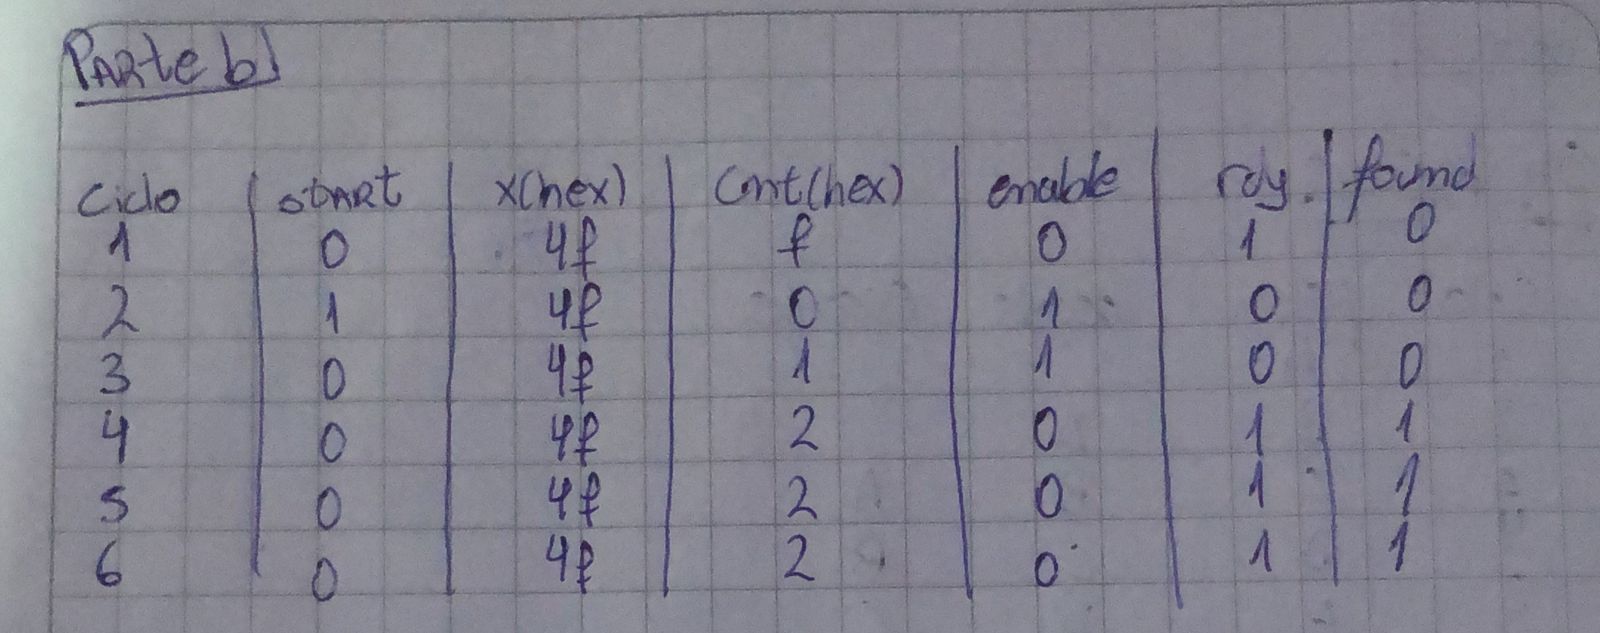 Parte b)
Ciclo | start | x(hex) | Cnt(hex) | enable | rdy. | found
1 | 0 | 4f | f | 0 | 1 | 0
2 | 1 | 4f | 0 | 1 | 0 | 0
3 | 0 | 4f | 1 | 1 | 0 | 0
4 | 0 | 4f | 2 | 0 | 1 | 1
5 | 0 | 4f | 2 | 0 | 1 | 1
6 | 0 | 4f | 2 | 0 | 1 | 1